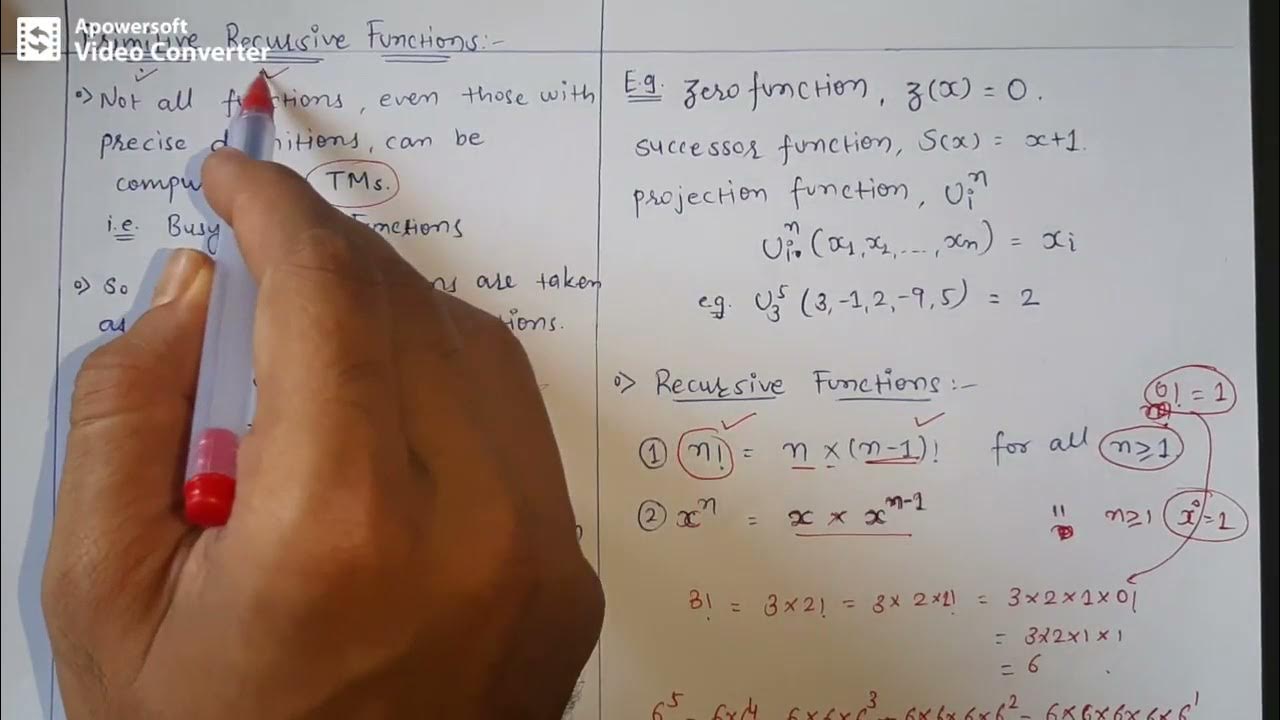 Apowersoft
Video Converter
Primitive Recursive Functions:-
Not all functions, even those with
precise definitions, can be
TMs.
i.e. Busy Functions
So are taken
as
E.g. Zero function, z(x) = 0.
successor function, S(x) = x+1.
projection function, Uᵢⁿ
Uᵢⁿ (x₁, x₂, ..., xₙ) = xᵢ
e.g. U₃⁵ (3, -1, 2, -9, 5) = 2
Recursive Functions:-
0! = 1
① n! = n × (n-1)! for all n≥1
② xⁿ = x × xⁿ⁻¹ " n≥1 x⁰=1
3! = 3×2! = 3×2×1! = 3×2×1×0!
= 3×2×1×1
= 6